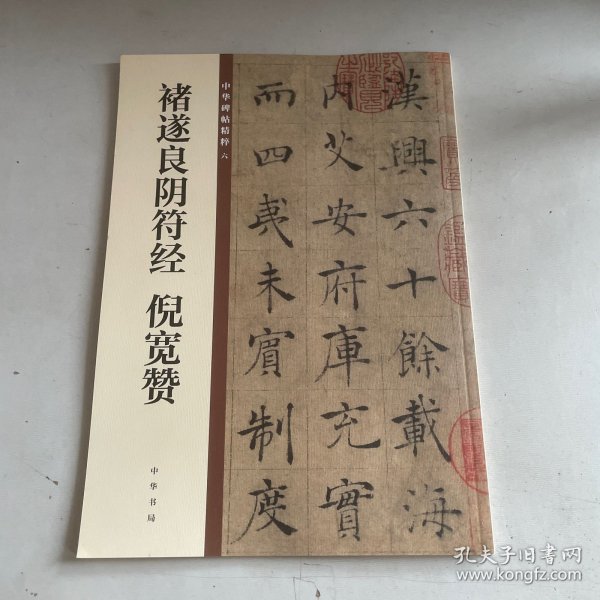 褚遂良阴符经 倪宽赞
中华书局
中华碑帖精粹 六
漢興六十餘載海
内艾安府庫充實
而四夷未賓制度
孔夫子旧书网
www.kongfz.com